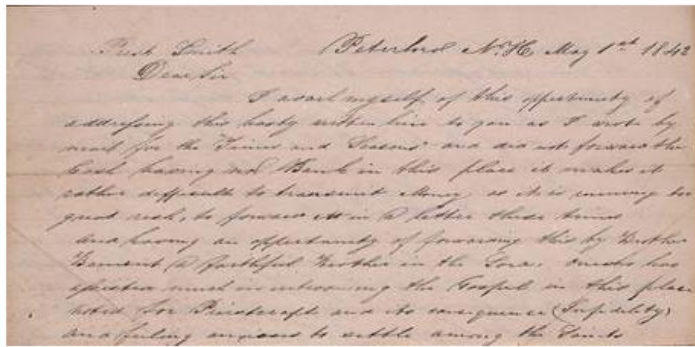 Prest Smith Peterboro N.H. May 1st 1842
Dear Sir
I avail myself of this opportunity of
addressing this hasty written line to you as I wrote by
mail for the Times and Seasons and did not forward the
Cash having no Bank in this place it makes it
rather difficult to transmit Money, as it is running too
great risk, to forward it in a letter these times
and having an opportunity of forwarding this by Brother
a faithful Brother in the Lord. who has
effected much in introducing the Gospel in this place
noted for Priestcraft and its consequence (Infidelity)
and feeling anxious to settle among the Saints